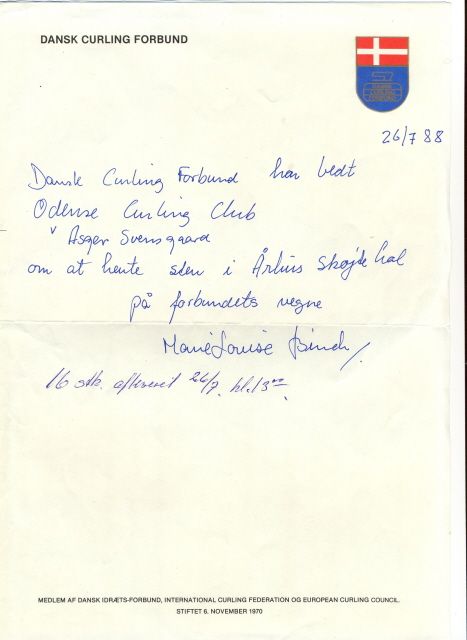 DANSK CURLING FORBUND
DANSK
CURLING
FORBUND
26/7 88
Dansk Curling Forbund har bedt
Odense Curling Club
v Asger Svensgaard
om at hente sten i Århus Skøjte hal
på forbundets vegne
Marie Louise
16 stk. afleveret 26/7. kl. 13 00
MEDLEM AF DANSK IDRÆTS-FORBUND, INTERNATIONAL CURLING FEDERATION OG EUROPEAN CURLING COUNCIL.
STIFTET 6. NOVEMBER 1970